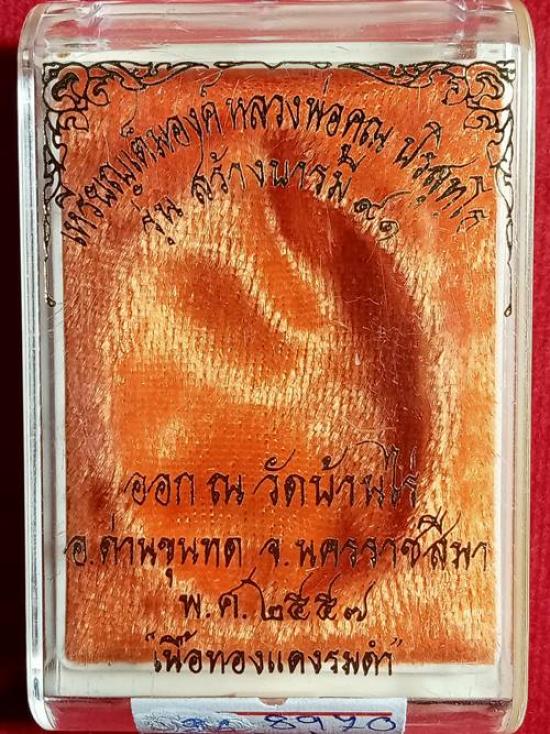 เหรียญเต็มองค์ หลวงพ่อคูณ ปริสุทฺโธ
รุ่น สร้างบารมี ๙๑
ออก ณ วัดบ้านไร่
อ.ด่านขุนทด จ.นครราชสีมา
พ.ศ. ๒๕๕๗
"เนื้อทองแดงรมดำ"
8970